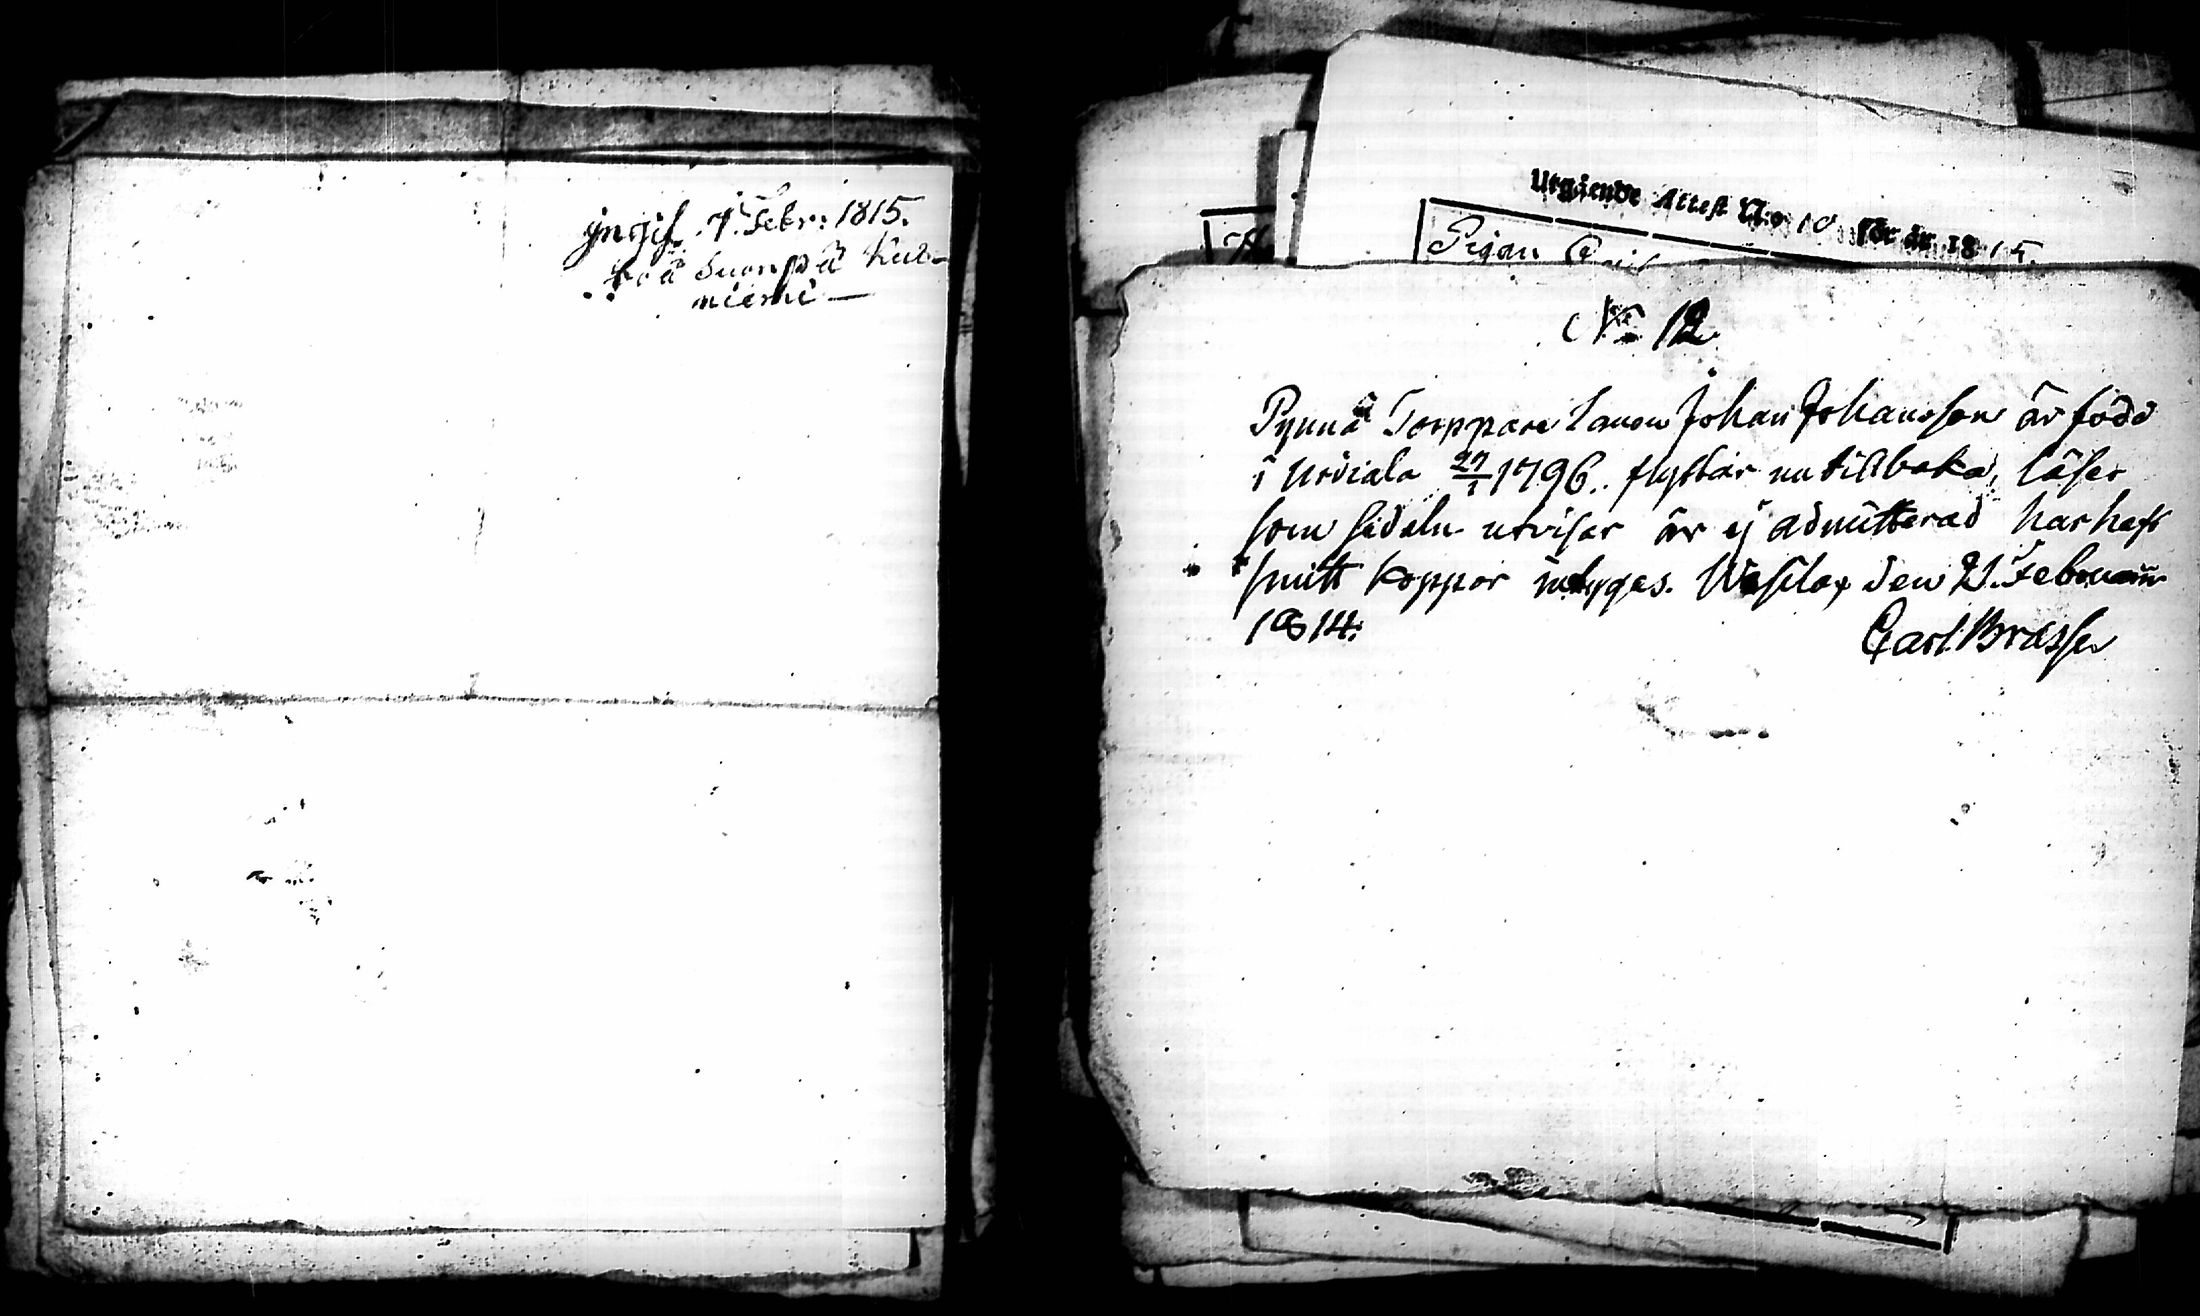 jngif. 7. Febr: 1815.
på Kul-
niemi —
Utgående Attest N:o 10 för år 1815.
Pigan
N:o 12
Pynnä Torppare Sonen Johan Johansson är född
i Urdiala 27/1 1796. flyttar nu tillbaka, läser
som sedeln utvisar är ej admitterad har haft
smitt koppor intygas. Wesilax den 21. Februarii
1814.
Carl Brasse